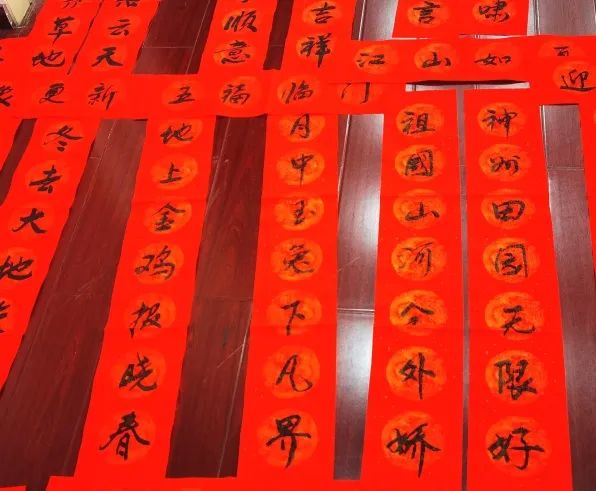 草地
云天
顺意
吉祥
言
啸
江山如
更新
五福临门
迎
冬去大地
地上金鸡报晓春
月中玉兔下凡界
祖國山河分外娇
神州田园无限好